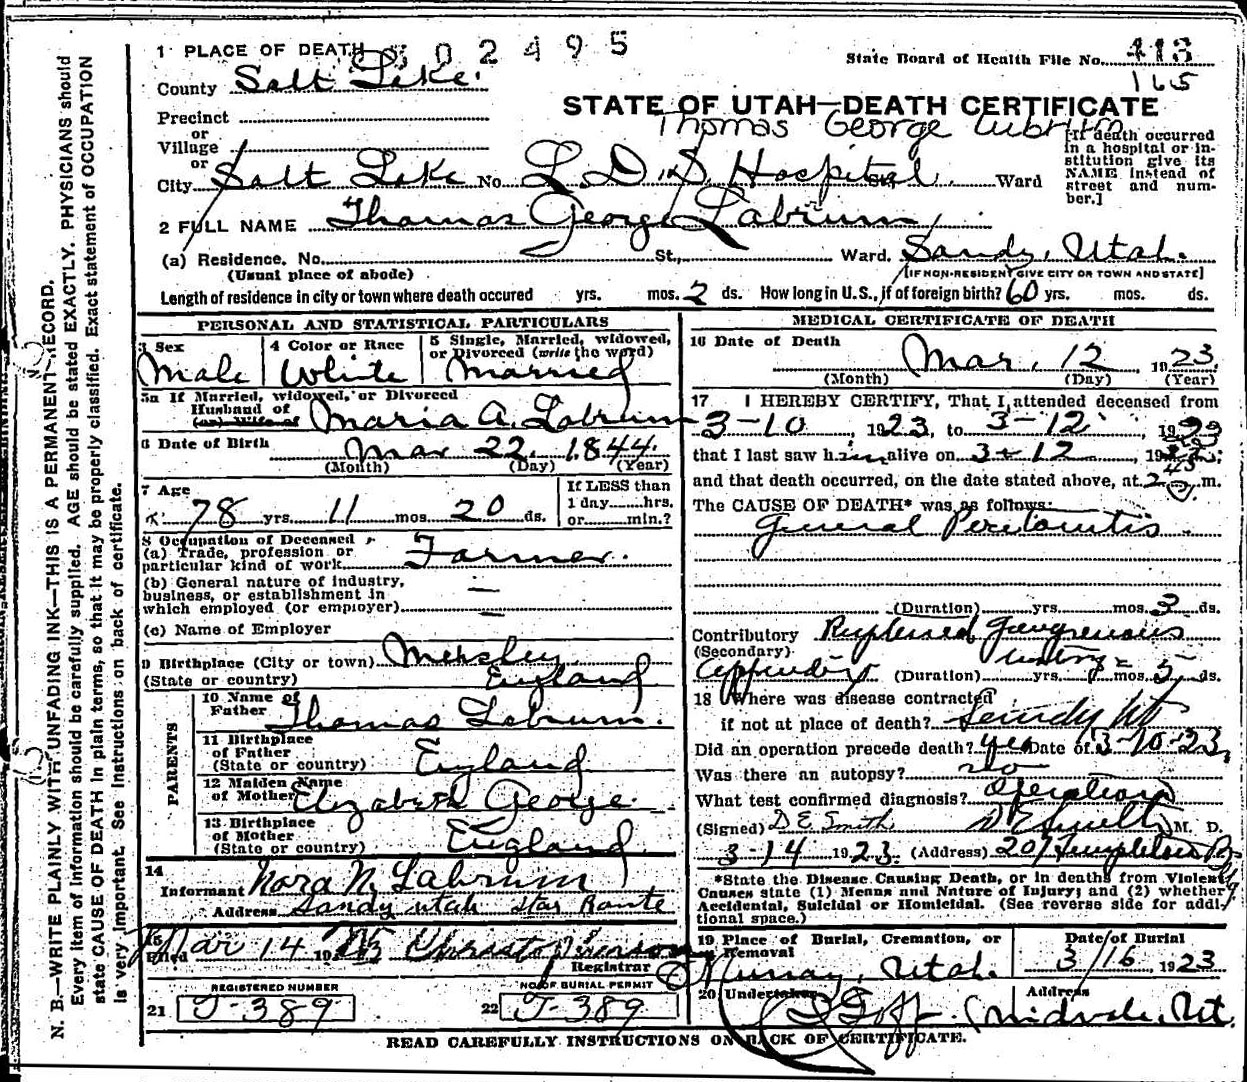 1 PLACE OF DEATH 302495
State Board of Health File No. 413
165
County Salt Lake.
STATE OF UTAH—DEATH CERTIFICATE
Precinct
or
Village
or
Thomas George
City Salt Lake No. L.D.S. Hospital St. Ward
[If death occurred in a hospital or institution give its NAME instead of street and number.]
2 FULL NAME Thomas George Labrum
(a) Residence. No. St., Ward. Sandy, Utah.
(Usual place of abode) [IF NON-RESIDENT GIVE CITY OR TOWN AND STATE]
Length of residence in city or town where death occured yrs. mos. 2 ds. How long in U.S., if of foreign birth? 60 yrs. mos. ds.
PERSONAL AND STATISTICAL PARTICULARS
3 Sex 4 Color or Race 5 Single, Married, widowed, or Divorced (write the word)
Male White Married
5a If Married, widowed, or Divorced
Husband of
(or) Wife of Maria A. Labrum
6 Date of Birth Mar 22 1844.
(Month) (Day) (Year)
7 Age If LESS than
78 yrs. 11 mos. 20 ds. 1 day hrs.
or min.?
8 Occupation of Deceased
(a) Trade, profession or
particular kind of work Farmer.
(b) General nature of industry,
business, or establishment in
which employed (or employer) —
(c) Name of Employer —
9 Birthplace (City or town)
(State or country) England
PARENTS
10 Name of
Father Thomas Labrum.
11 Birthplace
of Father
(State or country) England
12 Maiden Name
of Mother Elizabeth George.
13 Birthplace
of Mother
(State or country) England
14
Informant Nora N. Labrum
Address Sandy Utah Star Route
15
Filed Mar 14 19
Registrar
REGISTERED NUMBER NO. OF BURIAL PERMIT
21 J-389 22 J-389
MEDICAL CERTIFICATE OF DEATH
16 Date of Death Mar. 12 1923.
(Month) (Day) (Year)
17 I HEREBY CERTIFY, That I attended deceased from
3-10, 1923, to 3-12, 1923
that I last saw him alive on 3-12, 19
and that death occurred, on the date stated above, at 2 m.
The CAUSE OF DEATH* was as follows:
General Peritonitis
(Duration) yrs. mos. 3 ds.
Contributory Ruptured Gangrenous
(Secondary)
Appendix (Duration) yrs. mos. 5 ds.
18 Where was disease contracted
if not at place of death? Sandy Ut
Did an operation precede death? yes Date of 3-10-23,
Was there an autopsy? no
What test confirmed diagnosis? Operation
(Signed) D E Smith D E Smith M. D.
3-14 1923. (Address) 207 Templeton
*State the Disease Causing Death, or in deaths from Violent
Causes state (1) Means and Nature of Injury; and (2) whether
Accidental, Suicidal or Homicidal. (See reverse side for addi-
tional space.)
19 Place of Burial, Cremation, or Date of Burial
Removal
Murray, Utah. 3/16 1923
20 Undertaker Address
Goff. Midvale, Ut.
READ CAREFULLY INSTRUCTIONS ON BACK OF CERTIFICATE.
N. B.—WRITE PLAINLY WITH UNFADING INK—THIS IS A PERMANENT RECORD.
Every item of information should be carefully supplied. AGE should be stated EXACTLY. PHYSICIANS should
state CAUSE OF DEATH in plain terms, so that it may be properly classified. Exact statement of OCCUPATION
is very important. See instructions on back of certificate.